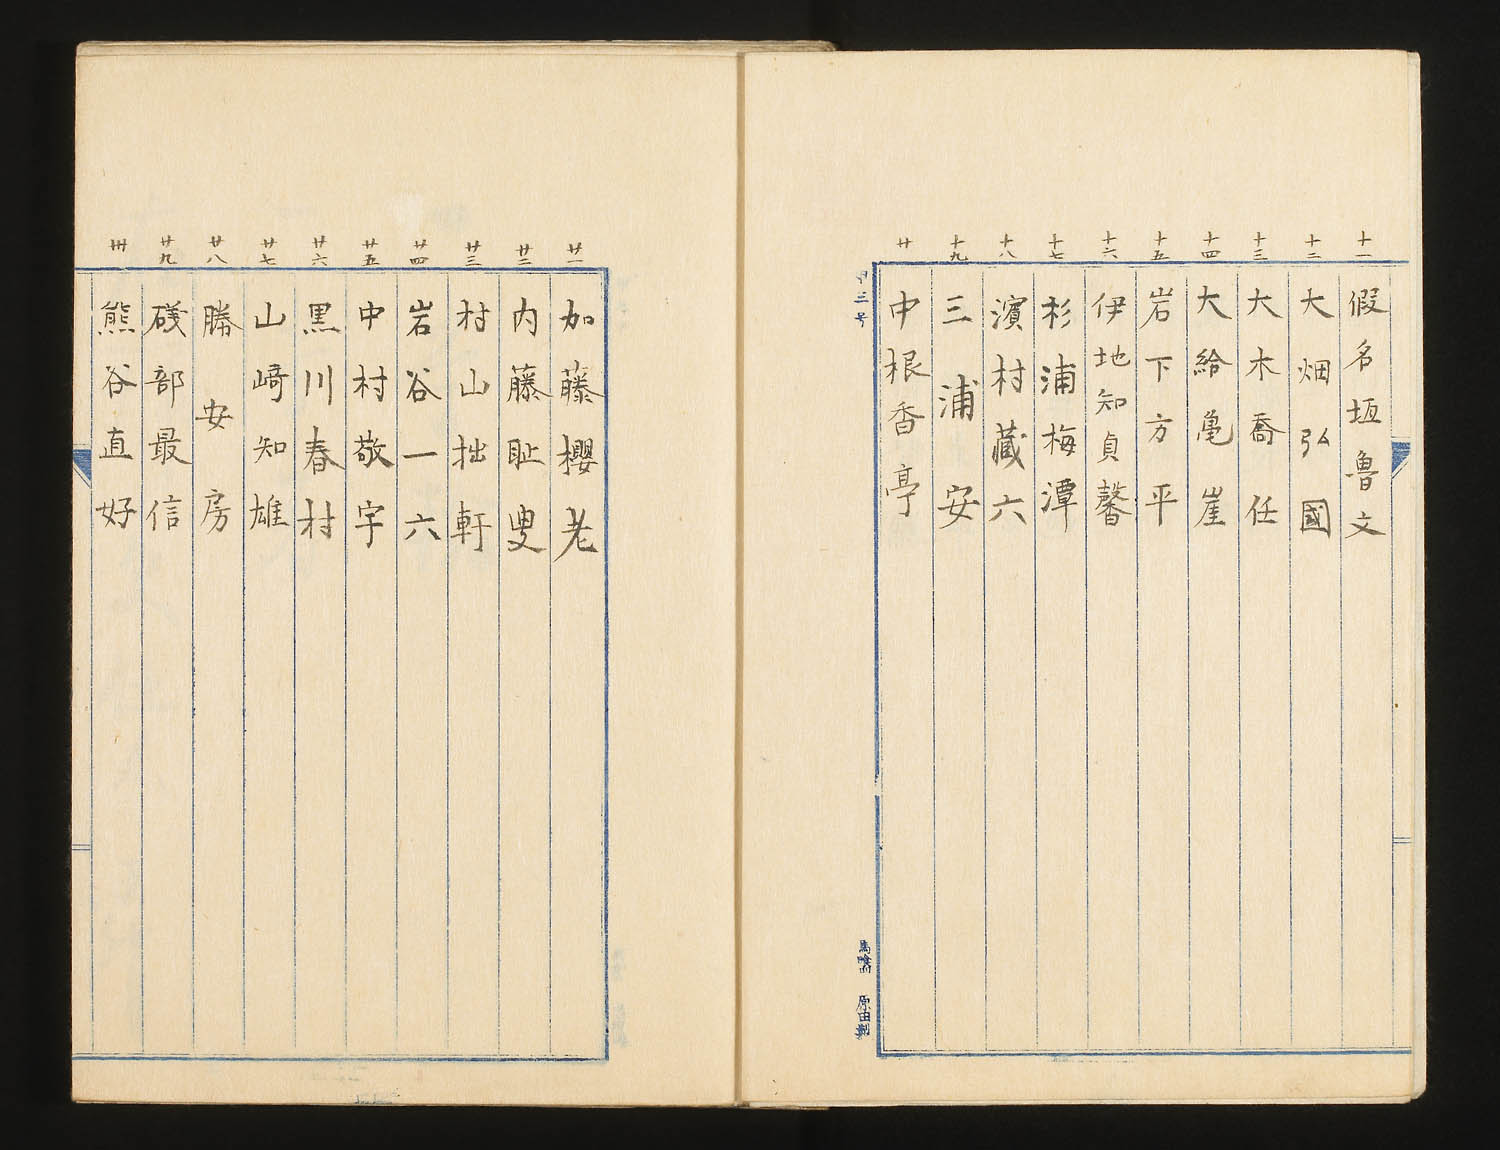 十一 假名垣魯文
十二 大畑弘國
十三 大木喬任
十四 大給亀崖
十五 岩下方平
十六 伊地知貞馨
十七 杉浦梅潭
十八 濱村藏六
十九 三浦安
廿 中根香亭
甲三号
原田製
廿一 加藤櫻老
廿二 内藤耻叟
廿三 村山拙軒
廿四 岩谷一六
廿五 中村敬宇
廿六 黒川春村
廿七 山﨑知雄
廿八 勝安房
廿九 磯部最信
卅 熊谷直好